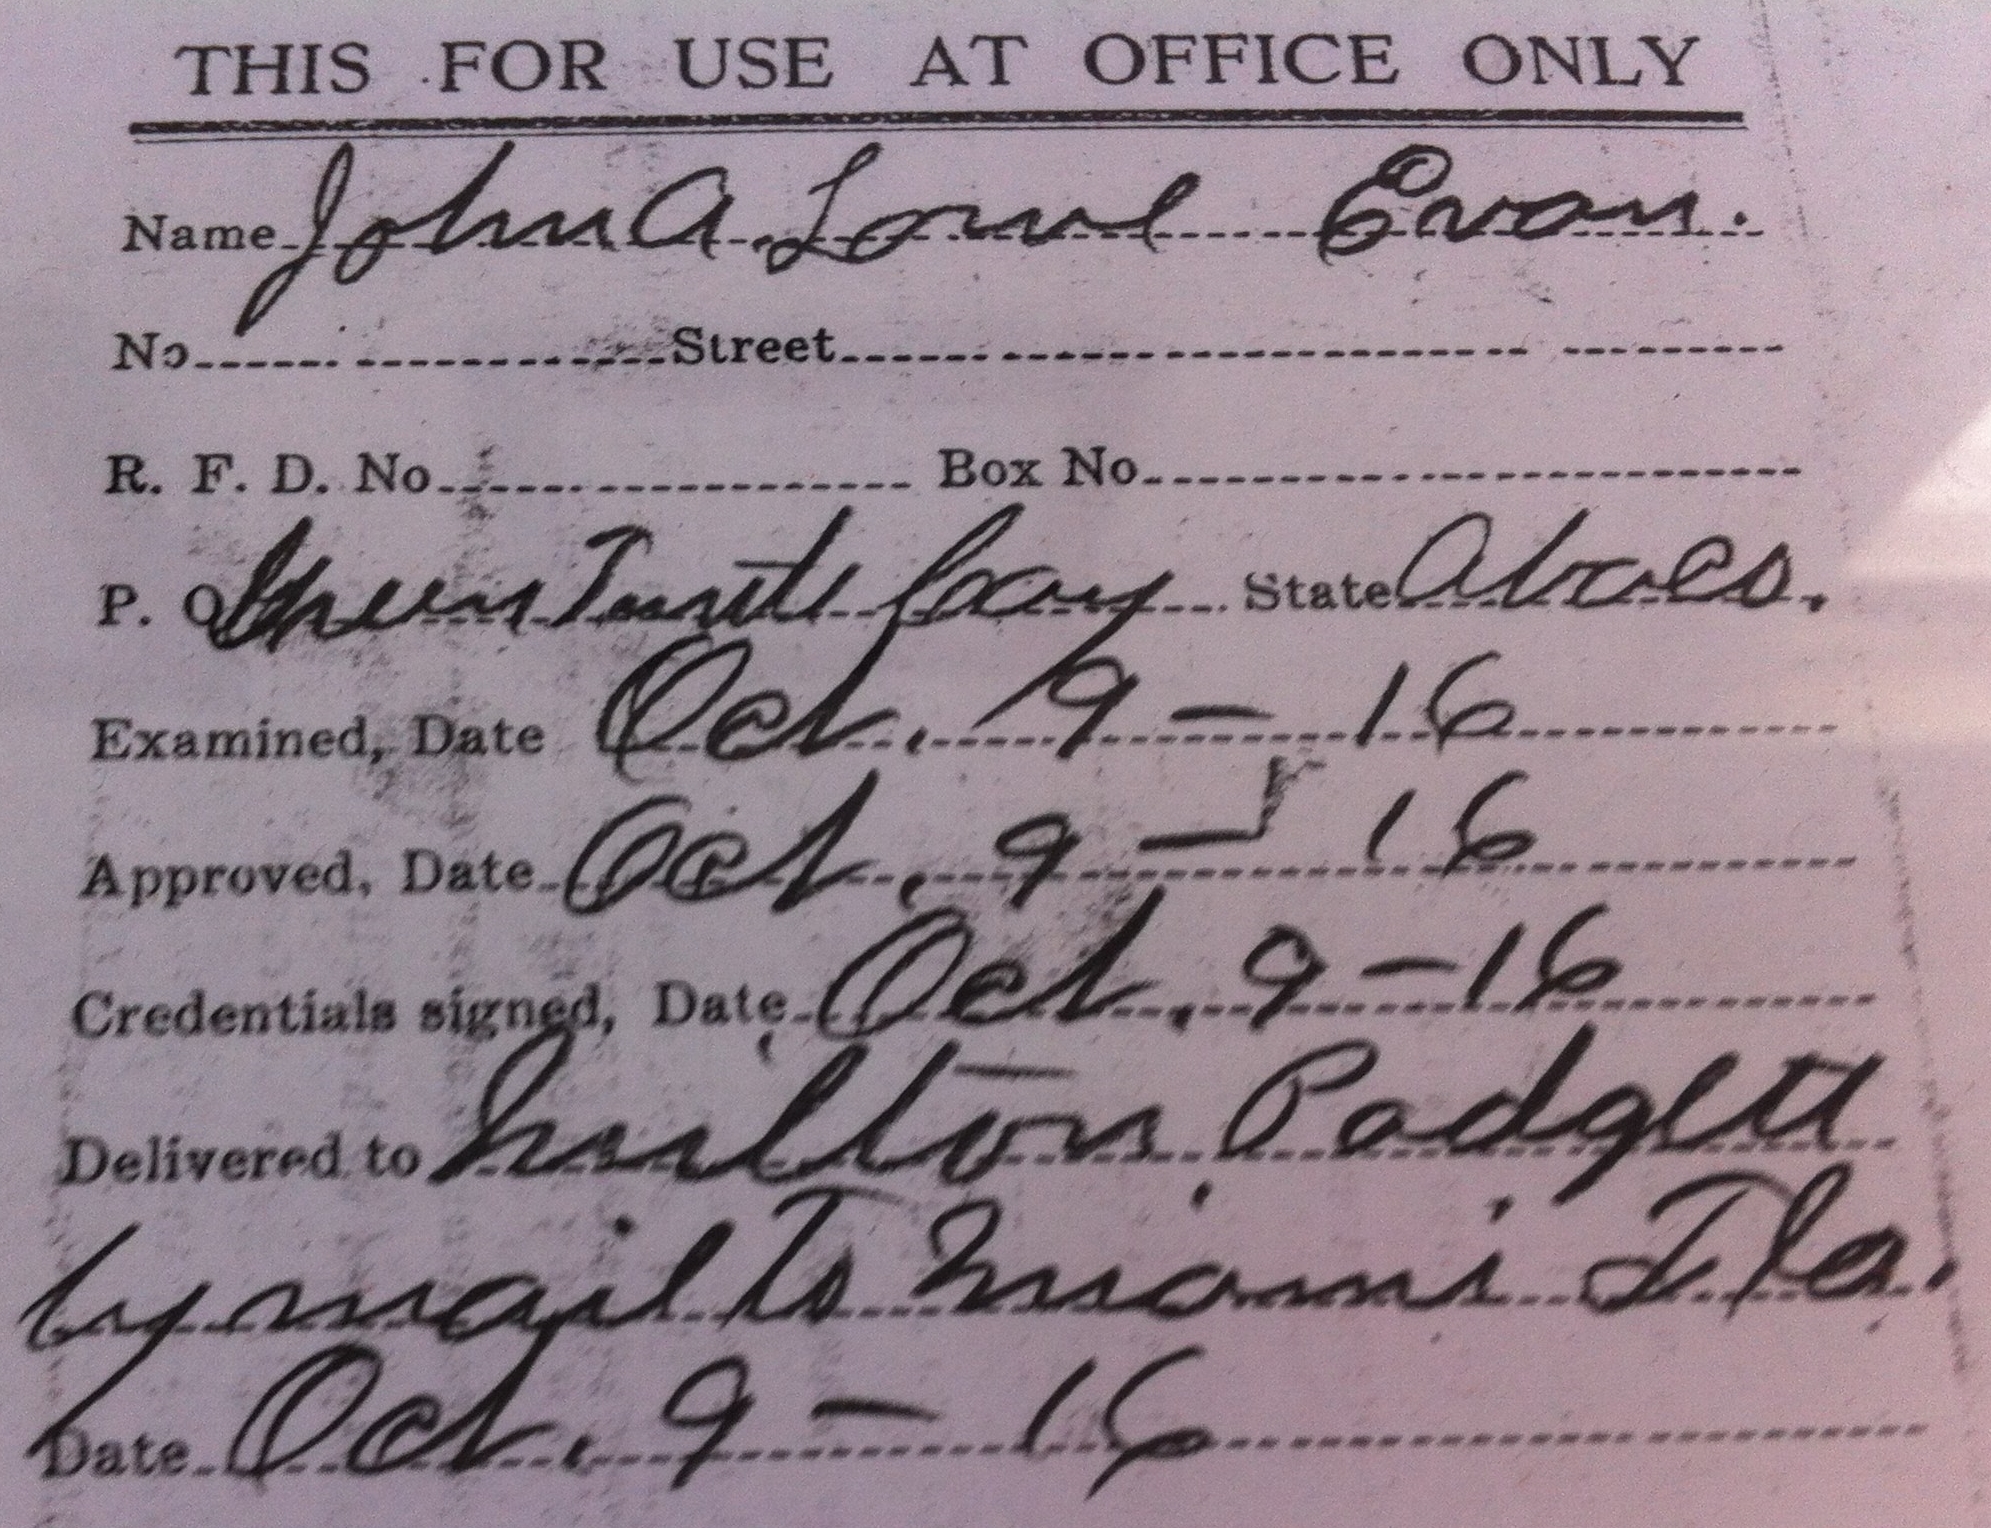 THIS FOR USE AT OFFICE ONLY
Name John A. Lowe Evan.
No. Street
R. F. D. No. Box No.
P. O. Green Turtle Cay State Abaco.
Examined, Date Oct. 9 - 16
Approved, Date Oct. 9 - 16
Credentials signed, Date Oct. 9 - 16
Delivered to Milton Padgett
by mail to Miami Fla.
Date Oct. 9 - 16